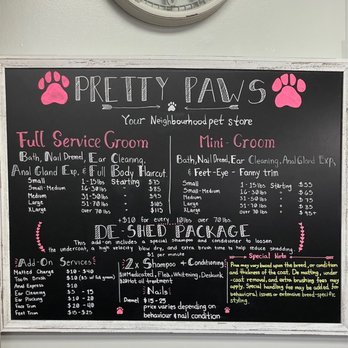 PRETTY PAWS
Your Neighbourhood pet store
Full Service Groom
Bath, Nail Dremel, Ear Cleaning,
Anal Gland Exp, & Full Body Haircut
Small 1-15lbs Starting $75
Small-Medium 16-30lbs
Medium 31-50lbs
Large 51-70lbs
XLarge over 70lbs
Mini-Groom
Bath, Nail Dremel, Ear Cleaning, Anal Gland Exp,
& Feet-Eye-Fanny trim
Small 1-15lbs Starting $55
Small-Medium 16-30lbs $65
Medium 31-50lbs $75
Large 51-70lbs $85
XLarge over 70lbs $95+
+$10 for every 10lbs over 70lbs.
DE-SHED PACKAGE
This add-on includes a special shampoo and conditioner to loosen
the undercoat, a high velocity blow dry, and extra brush time to help reduce shedding
$1 per minute
Add-On Services
Matted Charge $10-$40
Tooth Brush
Anal Express $10
Ear Cleaning $5-15
Ear Plucking $10-20
Face Trim $20-40
Feet Trim $15-$25
2x Shampoo + Conditioning
Medicated, Flea, Whitening, Deskunk
Hot oil treatment
Nails
Dremel $15-25
price varies depending on
behaviour & nail condition
Special Note
Price may vary based upon the breed, or condition
and thickness of the coat. De matting, under
-coat removal, and extra brushing fees may
apply. Special handling fee may be added for
behavioural issues or extensive breed-specific
styling.